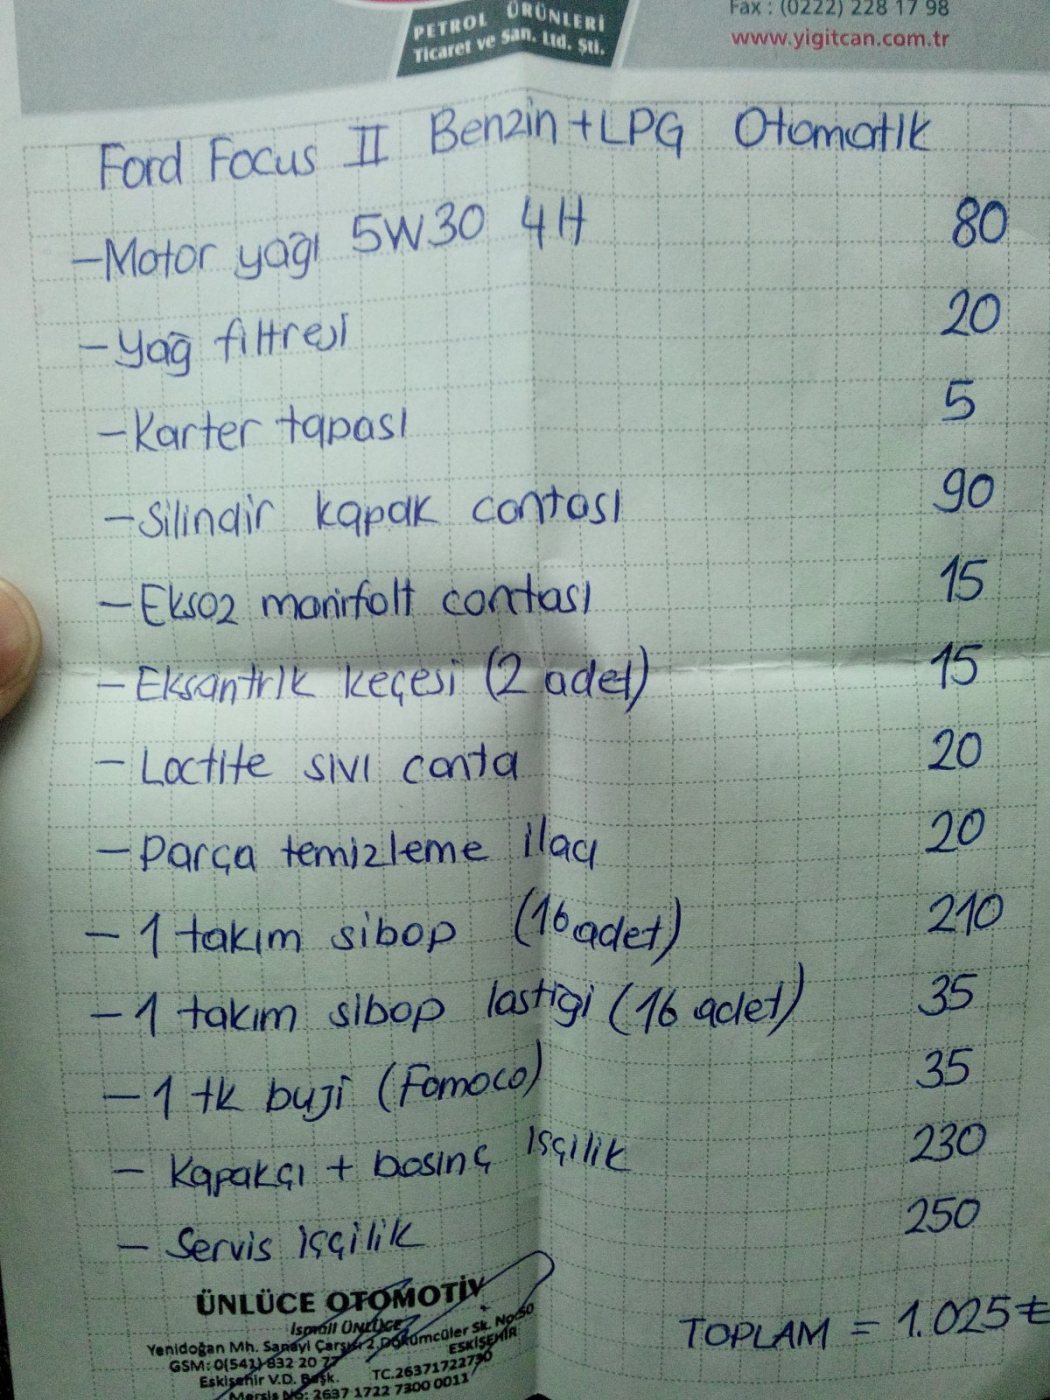 PETROL ÜRÜNLERİ
Ticaret ve San. Ltd. Şti.
Fax : (0222) 228 17 98
www.yigitcan.com.tr
Ford Focus II Benzin+LPG Otomatik
-Motor yağı 5W30 4H 80
-Yağ filtresi 20
-Karter tapası 5
-Silindir kapak contası 90
-Eksoz manifolt contası 15
-Eksantrik keçesi (2 adet) 15
-Loctite sıvı conta 20
-Parça temizleme ilacı 20
-1 takım sibop (16 adet) 210
-1 takım sibop lastiği (16 adet) 35
-1 tk buji (Fomoco) 35
-Kapakçı + basınç işçilik 230
-Servis işçilik 250
TOPLAM = 1.025₺
ÜNLÜCE OTOMOTİV
İsmail ÜNLÜCE
Yenidoğan Mh. Sanayi Çarşısı 2.Dökümcüler Sk. No:50
ESKİŞEHİR
GSM: 0(541) 832 20 77
Eskişehir V.D. Başk. TC.26371722730
Mersis No: 2637 1722 7300 0011